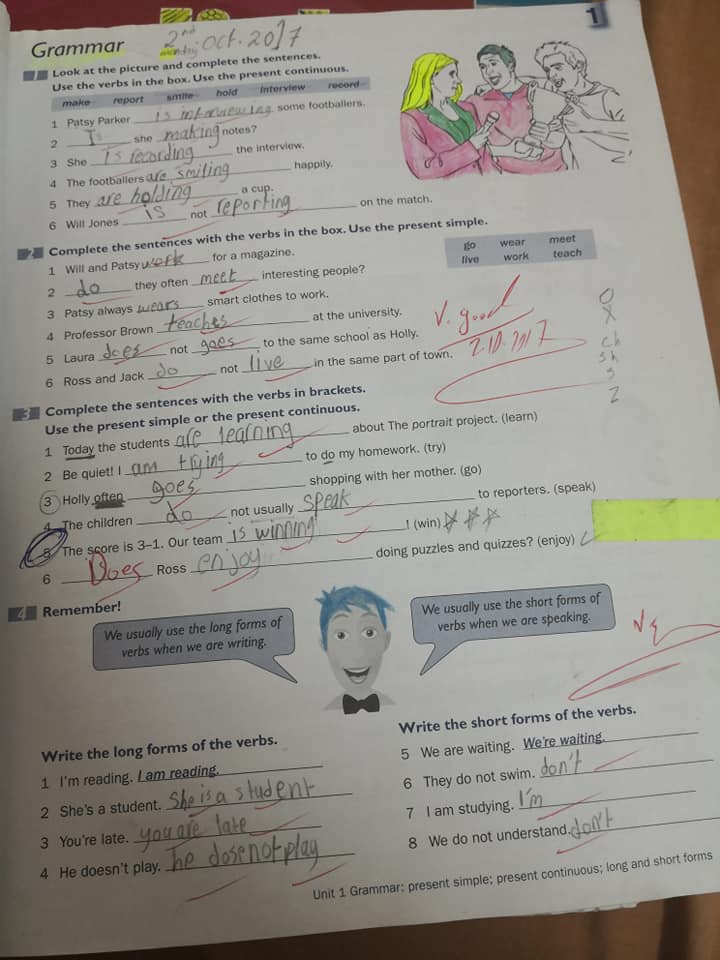 1
Grammar 2nd Oct. 2017
monday
1 Look at the picture and complete the sentences.
Use the verbs in the box. Use the present continuous.
make report smile hold interview record
1 Patsy Parker is interviewing some footballers.
2 Is she making notes?
3 She is recording the interview.
4 The footballers are smiling happily.
5 They are holding a cup.
6 Will Jones is not reporting on the match.
2 Complete the sentences with the verbs in the box. Use the present simple.
go wear meet
live work teach
1 Will and Patsy work for a magazine.
2 do they often meet interesting people?
3 Patsy always wears smart clothes to work.
4 Professor Brown teaches at the university.
5 Laura does not goes to the same school as Holly.
6 Ross and Jack do not live in the same part of town.
V. good
2.10.2017
O
X
ch
sh
s
Z
3 Complete the sentences with the verbs in brackets.
Use the present simple or the present continuous.
1 Today the students are learning about The portrait project. (learn)
2 Be quiet! I am trying to do my homework. (try)
3 Holly often goes shopping with her mother. (go)
4 The children do not usually speak to reporters. (speak)
5 The score is 3–1. Our team is winning! (win)
6 Does Ross enjoy doing puzzles and quizzes? (enjoy)
4 Remember!
We usually use the long forms of
verbs when we are writing.
We usually use the short forms of
verbs when we are speaking.
Write the long forms of the verbs.
1 I'm reading. I am reading.
2 She's a student. She is a student
3 You're late. you are late
4 He doesn't play. he dose not play
Write the short forms of the verbs.
5 We are waiting. We're waiting.
6 They do not swim. don't
7 I am studying. I'm
8 We do not understand. don't
Unit 1 Grammar: present simple; present continuous; long and short forms